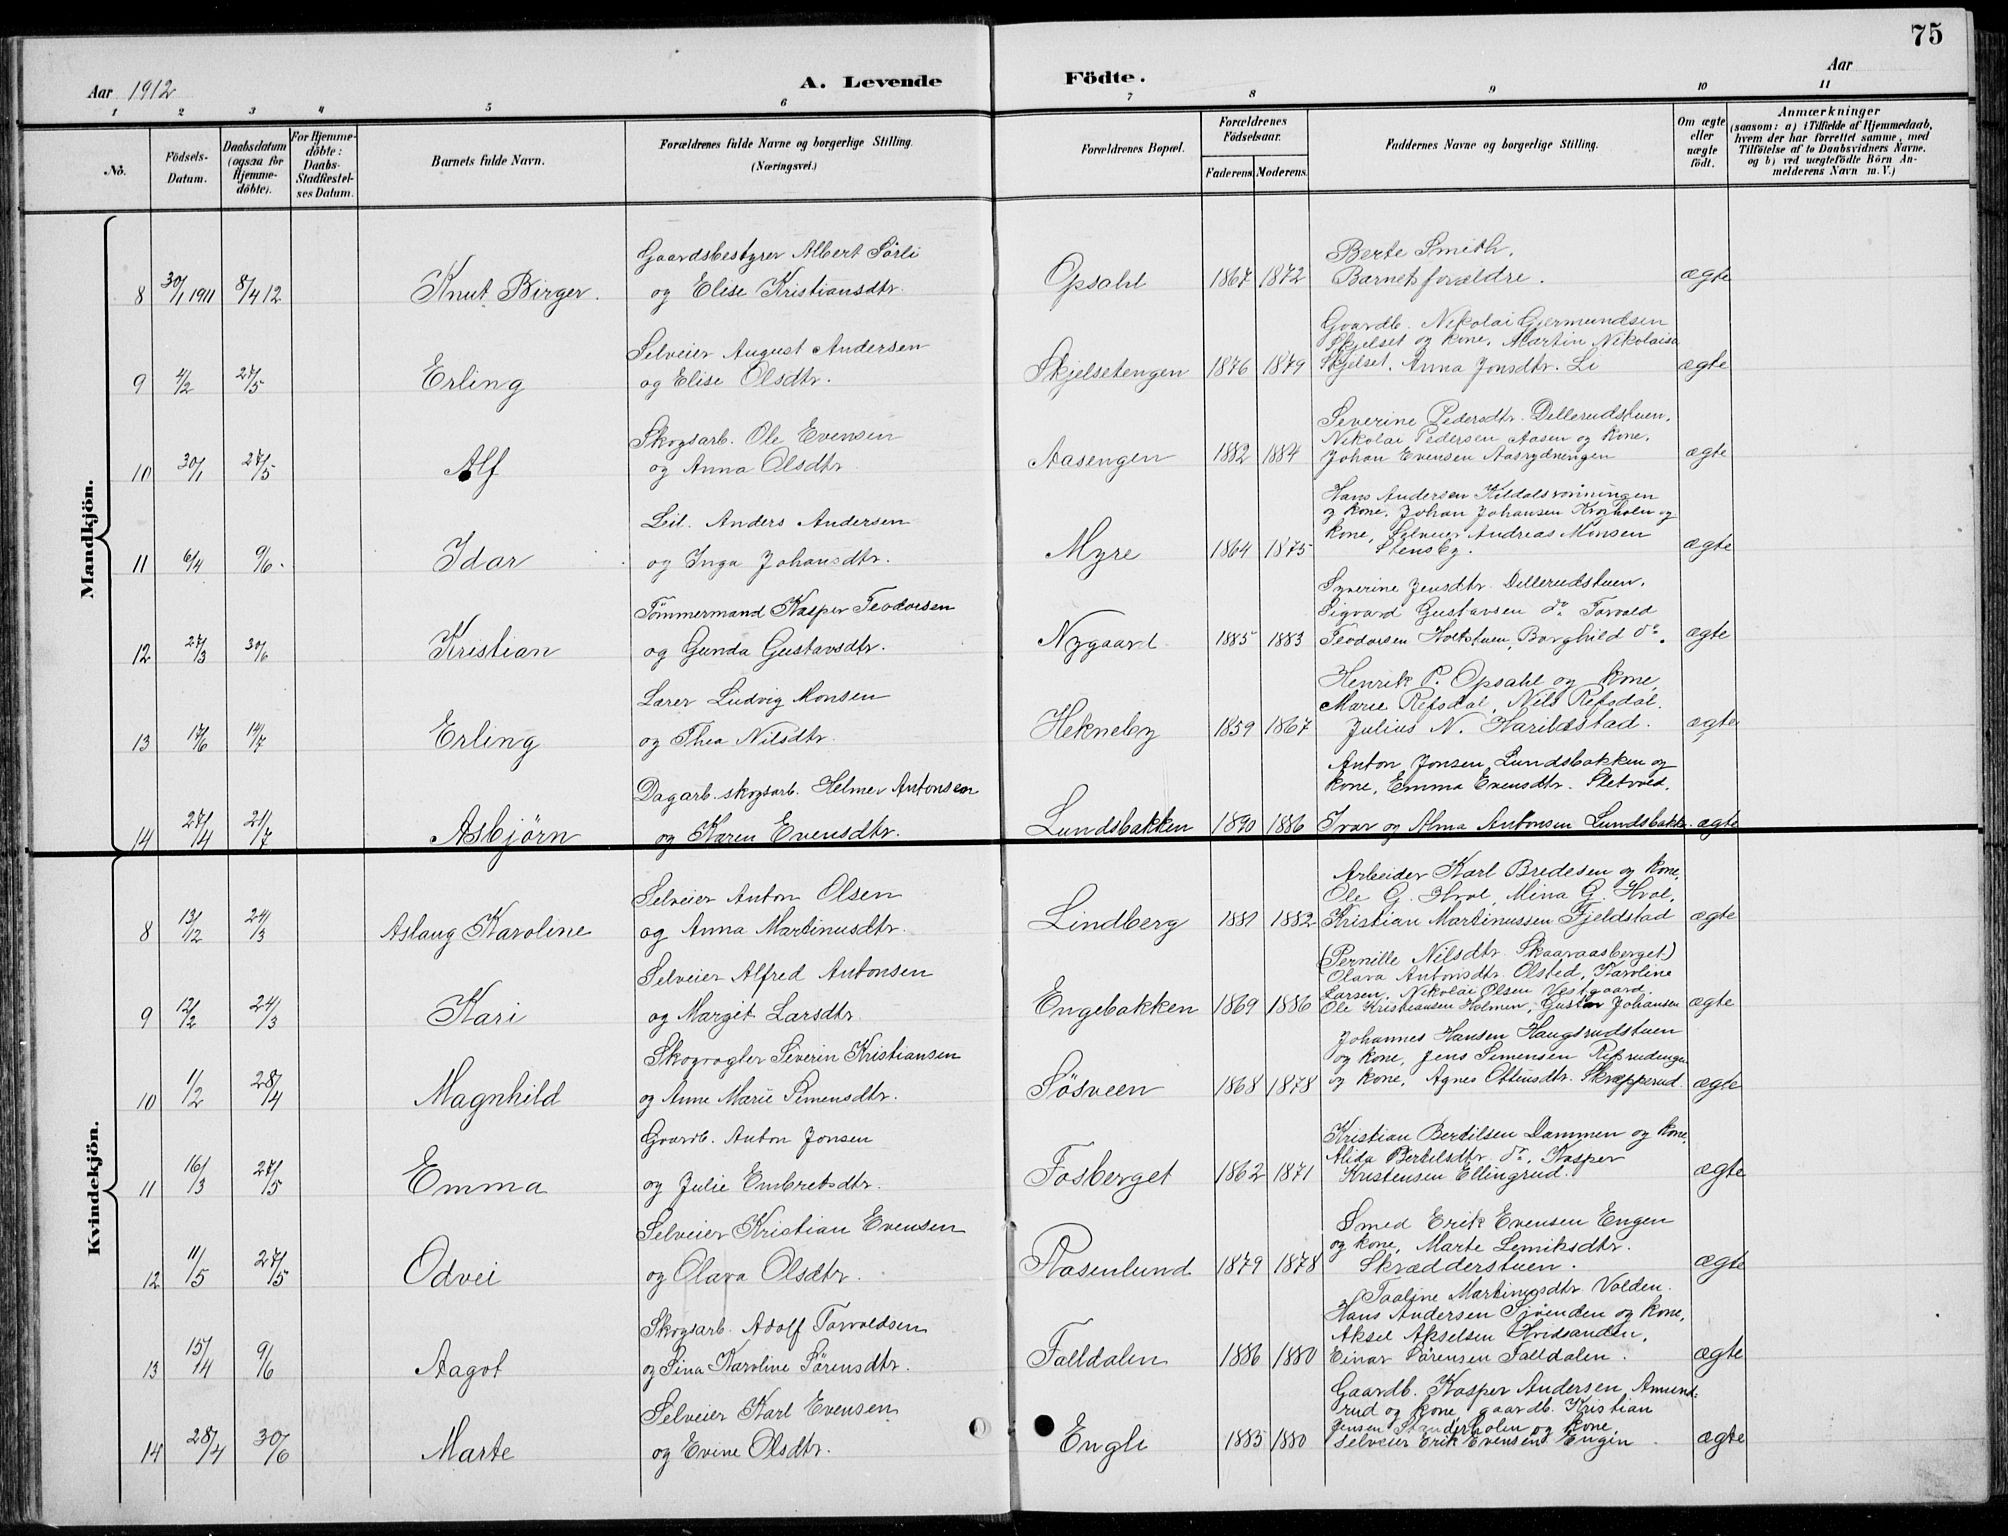 75
Aar 1912
A. Levende Födte.
Aar
1 2 3 4 5 6 7 8 9 10 11
No.
Födsels-Datum.
Daabsdatum (ogsaa for Hjemmedöbte).
For Hjemmedöbte: Daabs-Stadfæstelses Datum.
Barnets fulde Navn.
Forældrenes fulde Navne og borgerlige Stilling. (Næringsvei.)
Forældrenes Bopæl.
Forældrenes Födselsaar.
Faderens. Moderens.
Faddernes Navne og borgerlige Stilling.
Om ægte eller uægte födt.
Anmærkninger
(saasom: a) i Tilfælde af Hjemmedaab, hvem der har forrettet samme, med Tilföielse af to Daabsvidners Navne. og b) ved uægtefödte Börn Anmelderens Navn m. V.)
Mandkjön.
8 30/1 1911 8/4 12 Knut Birger.
Gaardsbestyrer Albert Sörli
og Elise Kristiansdtr.
Opsahl 1867 1872
Berte Smith.
Barnets forældre.
ægte
9 4/2 27/5 Erling
Selveier August Andersen
og Elise Olsdtr.
Skjelsetengen 1876 1879
Gaardb. Nikolai Gjermundsen
Skjelset og kone, Martin Nikolaisen
Skjelset. Anna Jonsdtr. Li
ægte
10 30/1 27/5 Alf
Skogsarb. Ole Evensen
og Anna Olsdtr
Aasengen 1882 1884
Severine Pedersdtr. Dellerudstuen,
Nikolai Pedersen Aasen og kone,
Johan Evensen Aasrydningen
ægte
11 6/4 9/6. Idar
Leil. Anders Andersen
og Inga Johansdtr.
Myre 1864 1875
Hans Andersen Kildalsrönningen
og kone, Johan Johansen Krogholen og
kone, Selveier Andreas Monsen
Stensby.
ægte
12 27/3 30/6 Kristian
Tömmermand Kasper Teodorsen
og Gunda Gustavsdtr.
Nygaard 1885 1883
Synerine Jensdtr. Dellerudstuen,
Sigvard Gustavsen do. Torvald
Teodorsen Holtstuen, Borghild do.
ægte
13 17/6 14/7 Erling
Lærer Ludvig Monsen
og Thea Nilsdtr.
Hekneby 1859 1867
Henrik P. Opsahl og kone,
Marie Refsdal, Nils Refsdal.
Julius N. Harildstad.
ægte
14 27/4 21/7 Asbjörn
Dagarb. skogsarb. Helmer Antonsen
og Karen Evensdtr.
Lundsbakken 1890 1886
Anton Jonsen Lundsbakken og
kone, Emma Evensdtr. Sletvold,
Ivar og Alma Antonsen Lundsbakk.
ægte
Kvindekjön.
8 13/12 24/3 Aslaug Karoline
Selveier Anton Olsen
og Anna Martinusdtr.
Lindberg 1881 1882
Arbeider Karl Bredesen og kone,
Ole G. Hval, Mina G. Hval,
Kristian Martinussen Fjeldstad
ægte
9 12/2 24/3 Kari
Selveier Alfred Antonsen
og Margit Larsdtr.
Engebakken 1869 1886
(Pernille Nilsdtr. Skaaraasberget)
Olava Antonsdtr. Olsted, Karoline
Larsen, Nikolai Olsen Vestgaard.
Ole Kristiansen Holmen, Gustav Johansen
ægte
10 1/2 28/4 Magnhild
Skogvogter Severin Kristiansen
og Anne Marie Simensdtr.
Sösveen 1868 1878
Johannes Hansen Haugsrudstuen
og kone, Jens Simensen Refsrudengen
og kone, Agnes Ottinsdtr. Skrepperud.
ægte
11 16/3 27/5 Emma
Gaardb. Anton Jonsen
og Julie Embretsdtr.
Fosberget 1862 1871
Kristian Bertilsen Dammen og kone,
Alida Bertilsdtr. do. Kasper
Kristensen Ellingrud.
ægte
12 11/5 27/5 Odvei
Selveier Kristian Evensen
og Olava Olsdtr.
Rosenlund 1879 1878
Smed Erik Evensen Engen
og kone, Marte Lemiksdtr.
Skrædderstuen.
ægte
13 15/4 9/6 Aagot
Skogsarb. Adolf Torvaldsen
og Sina Karoline Sörensdtr.
Falldalen 1886 1880
Paaline Martinusdtr. Volden.
Hans Andersen Sjöenden og kone,
Aksel Akselsen Hvidsanden,
Einar Sörensen Falldalen.
ægte
14 28/4 30/6 Marte
Selveier Karl Evensen
og Evine Olsdtr.
Engli 1885 1880
Gaardb. Kasper Andersen Amund-
rud og kone, gaardb. Kristian
Jensen Standerholen og kone,
Selveier Erik Evensen Engin
ægte